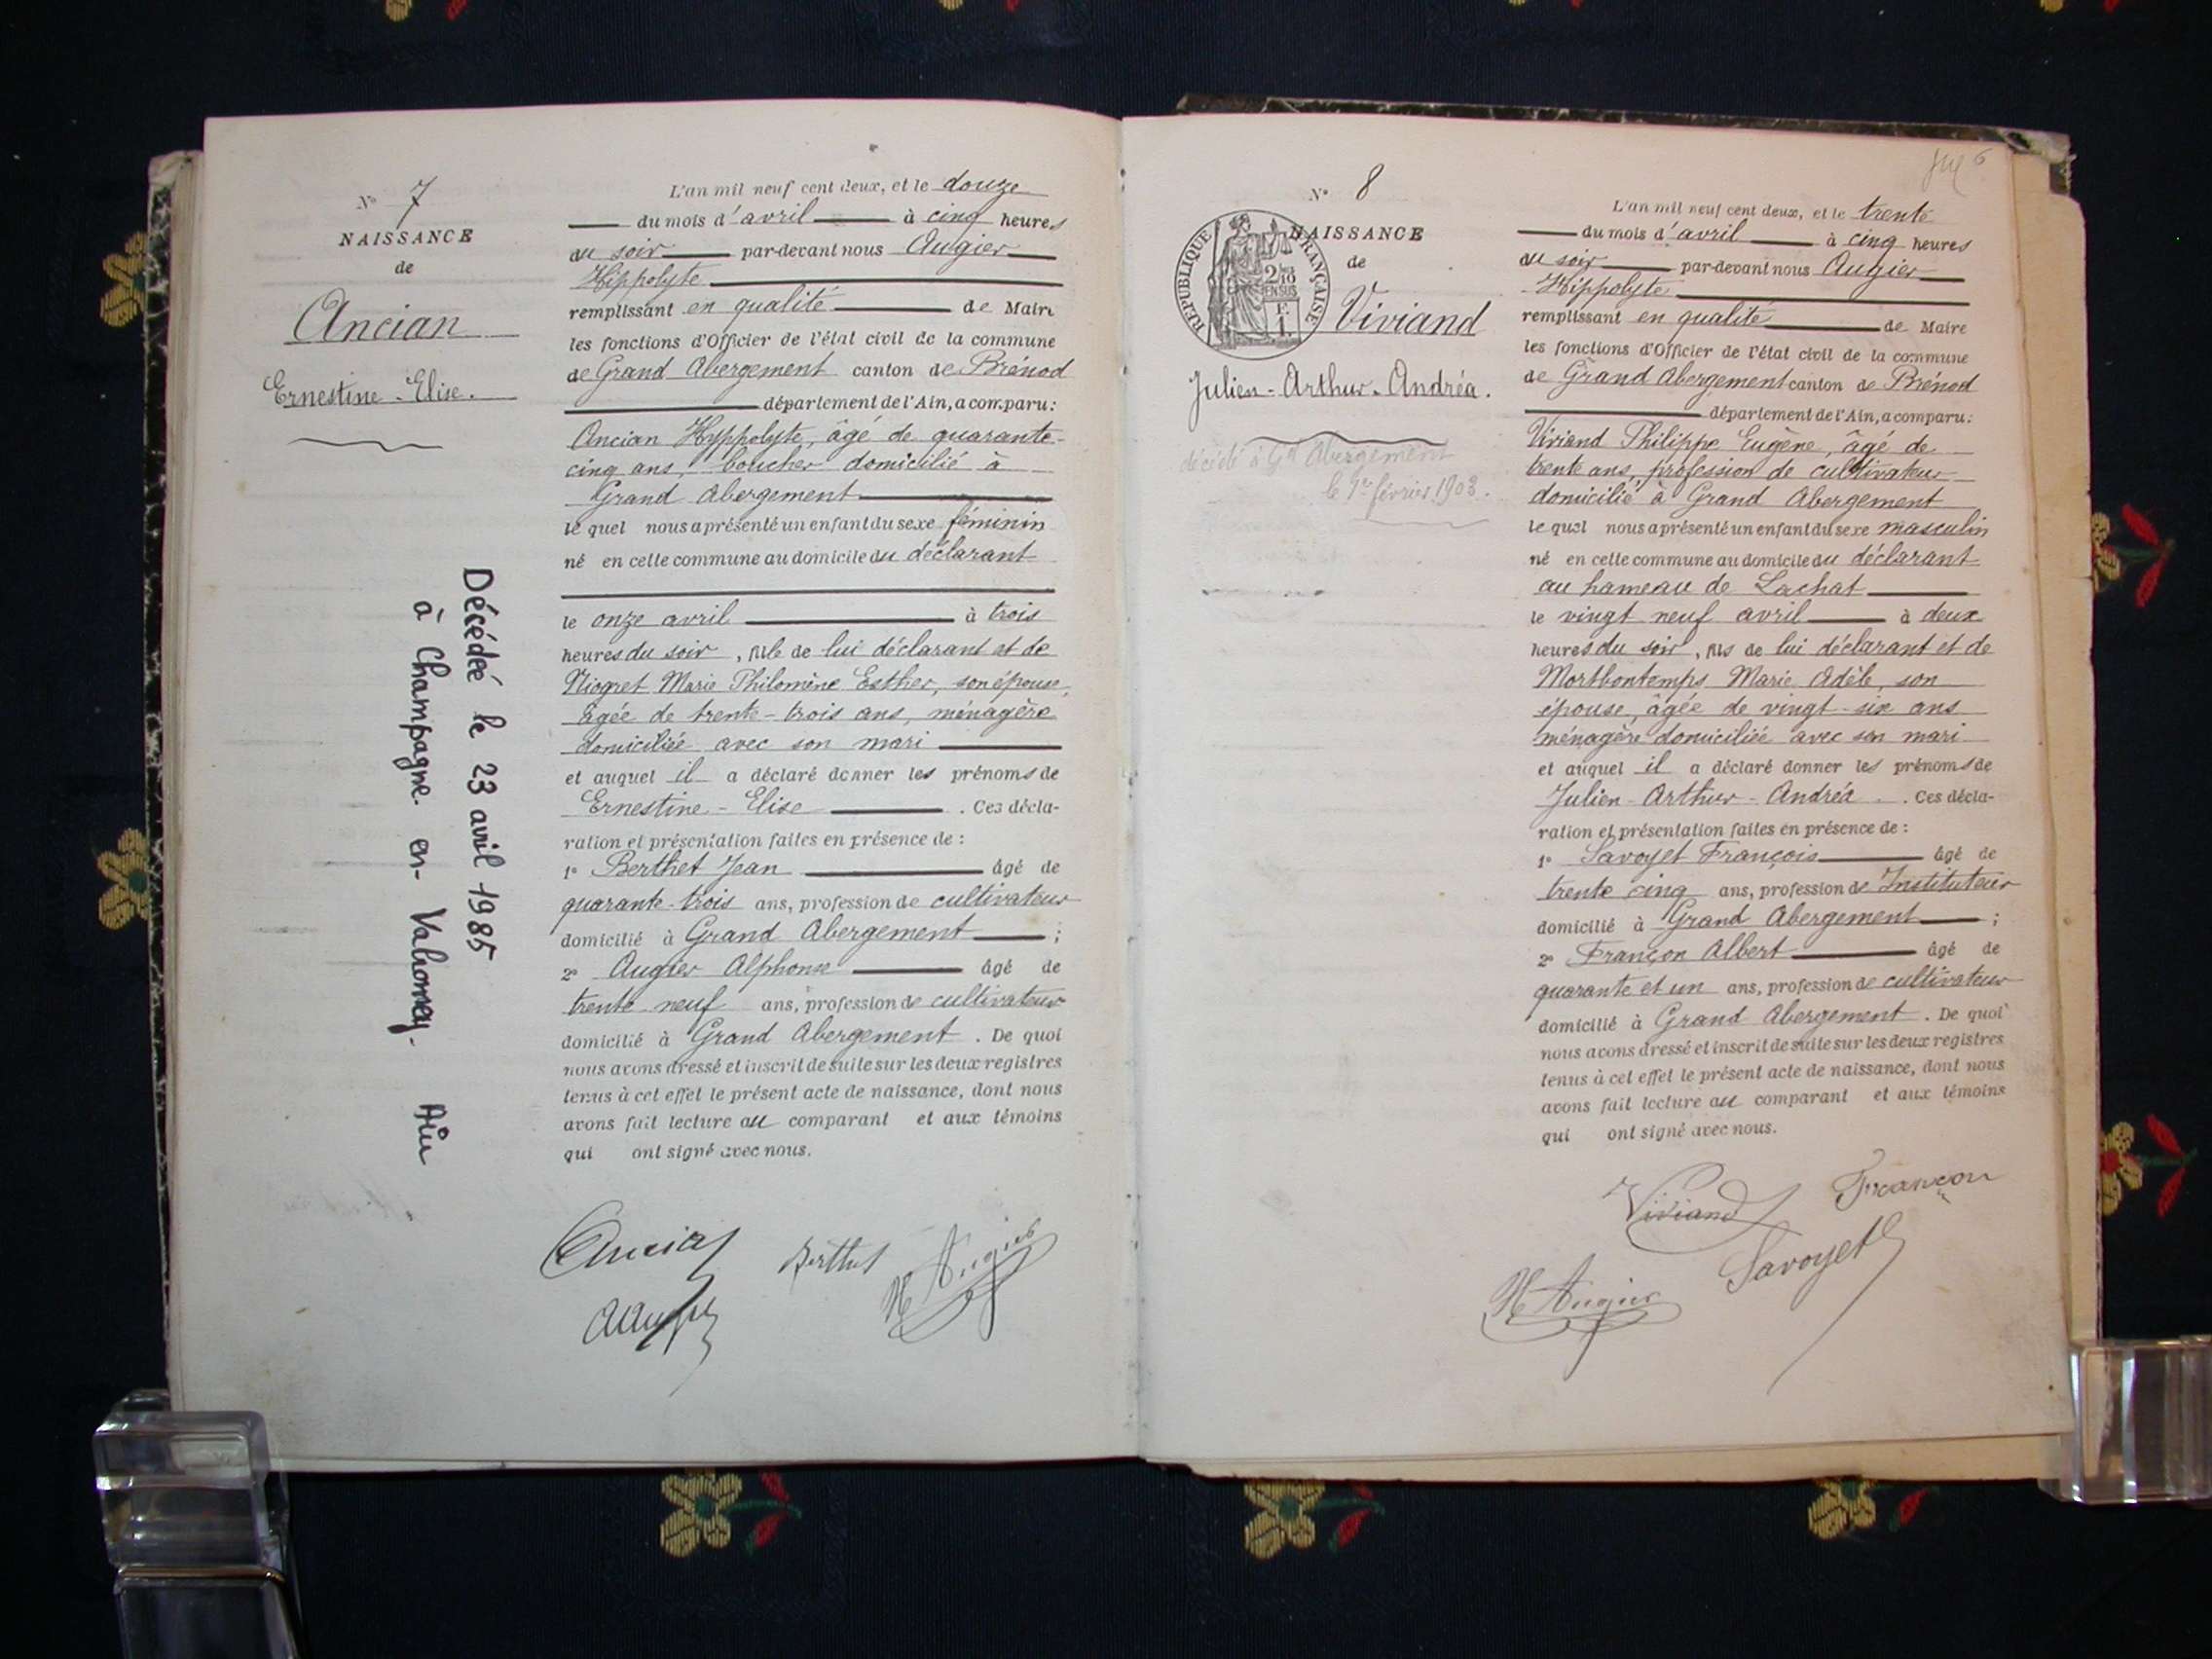 N° 7
NAISSANCE
de
Ancian
Ernestine - Elise.
Décédée le 23 avril 1985
à Champagne-en-Valromey. Ain
L'an mil neuf cent deux, et le douze
du mois d'avril à cinq heures
du soir par-devant nous Augier
Hippolyte
remplissant en qualité de Maire
les fonctions d'Officier de l'état civil de la commune
de Grand Abergement canton de Brénod
département de l'Ain, a comparu:
Ancian Hyppolyte, âgé de quarante-
cinq ans, boucher domicilié à
Grand Abergement
le quel nous a présenté un enfant du sexe féminin
né en cette commune au domicile du déclarant
le onze avril à trois
heures du soir, fille de lui déclarant et de
Niogret Marie Philomène Esther, son épouse,
âgée de trente-trois ans, ménagère
domiciliée avec son mari
et auquel il a déclaré donner les prénoms de
Ernestine - Elise. Ces décla-
ration et présentation faites en présence de :
1° Berthet Jean âgé de
quarante-trois ans, profession de cultivateur
domicilié à Grand Abergement ;
2° Augier Alphonse âgé de
trente neuf ans, profession de cultivateur
domicilié à Grand Abergement. De quoi
nous avons dressé et inscrit de suite sur les deux registres
tenus à cet effet le présent acte de naissance, dont nous
avons fait lecture au comparant et aux témoins
qui ont signé avec nous.
Ancian
Berthet
H Augier
A Augier
N° 8
NAISSANCE
de
RÉPUBLIQUE FRANÇAISE
2/10 EN SUS
F. 1.
Viviand
Julien - Arthur - Andréa.
décédé à Gd Abergement
le 1er février 1903.
6
L'an mil neuf cent deux, et le trente
du mois d'avril à cinq heures
du soir par-devant nous Augier
Hippolyte
remplissant en qualité de Maire
les fonctions d'Officier de l'état civil de la commune
de Grand Abergement canton de Brénod
département de l'Ain, a comparu:
Viviand Philippe Eugène, âgé de
trente ans, profession de cultivateur
domicilié à Grand Abergement
le quel nous a présenté un enfant du sexe masculin
né en cette commune au domicile du déclarant
au hameau de Lachat
le vingt neuf avril à deux
heures du soir, fils de lui déclarant et de
Mortbontemps Marie Adèle, son
épouse, âgée de vingt-six ans
ménagère domiciliée avec son mari
et auquel il a déclaré donner les prénoms de
Julien - Arthur - Andréa. Ces décla-
ration et présentation faites en présence de :
1° Savoyet François âgé de
trente cinq ans, profession de Instituteur
domicilié à Grand Abergement ;
2° Françon Albert âgé de
quarante et un ans, profession de cultivateur
domicilié à Grand Abergement. De quoi
nous avons dressé et inscrit de suite sur les deux registres
tenus à cet effet le présent acte de naissance, dont nous
avons fait lecture au comparant et aux témoins
qui ont signé avec nous.
Viviand
Françon
Savoyet
H Augier